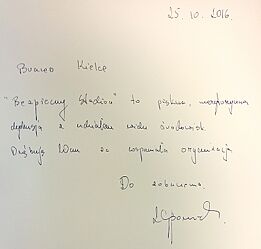 25.10.2016.
Brawo Kielce
"Bezpieczny Stadion" to piękna, merytoryczna
dyskusja z udziałem wielu środowisk.
Dziękuję Wam za wspaniałą organizację
Do zobaczenia.